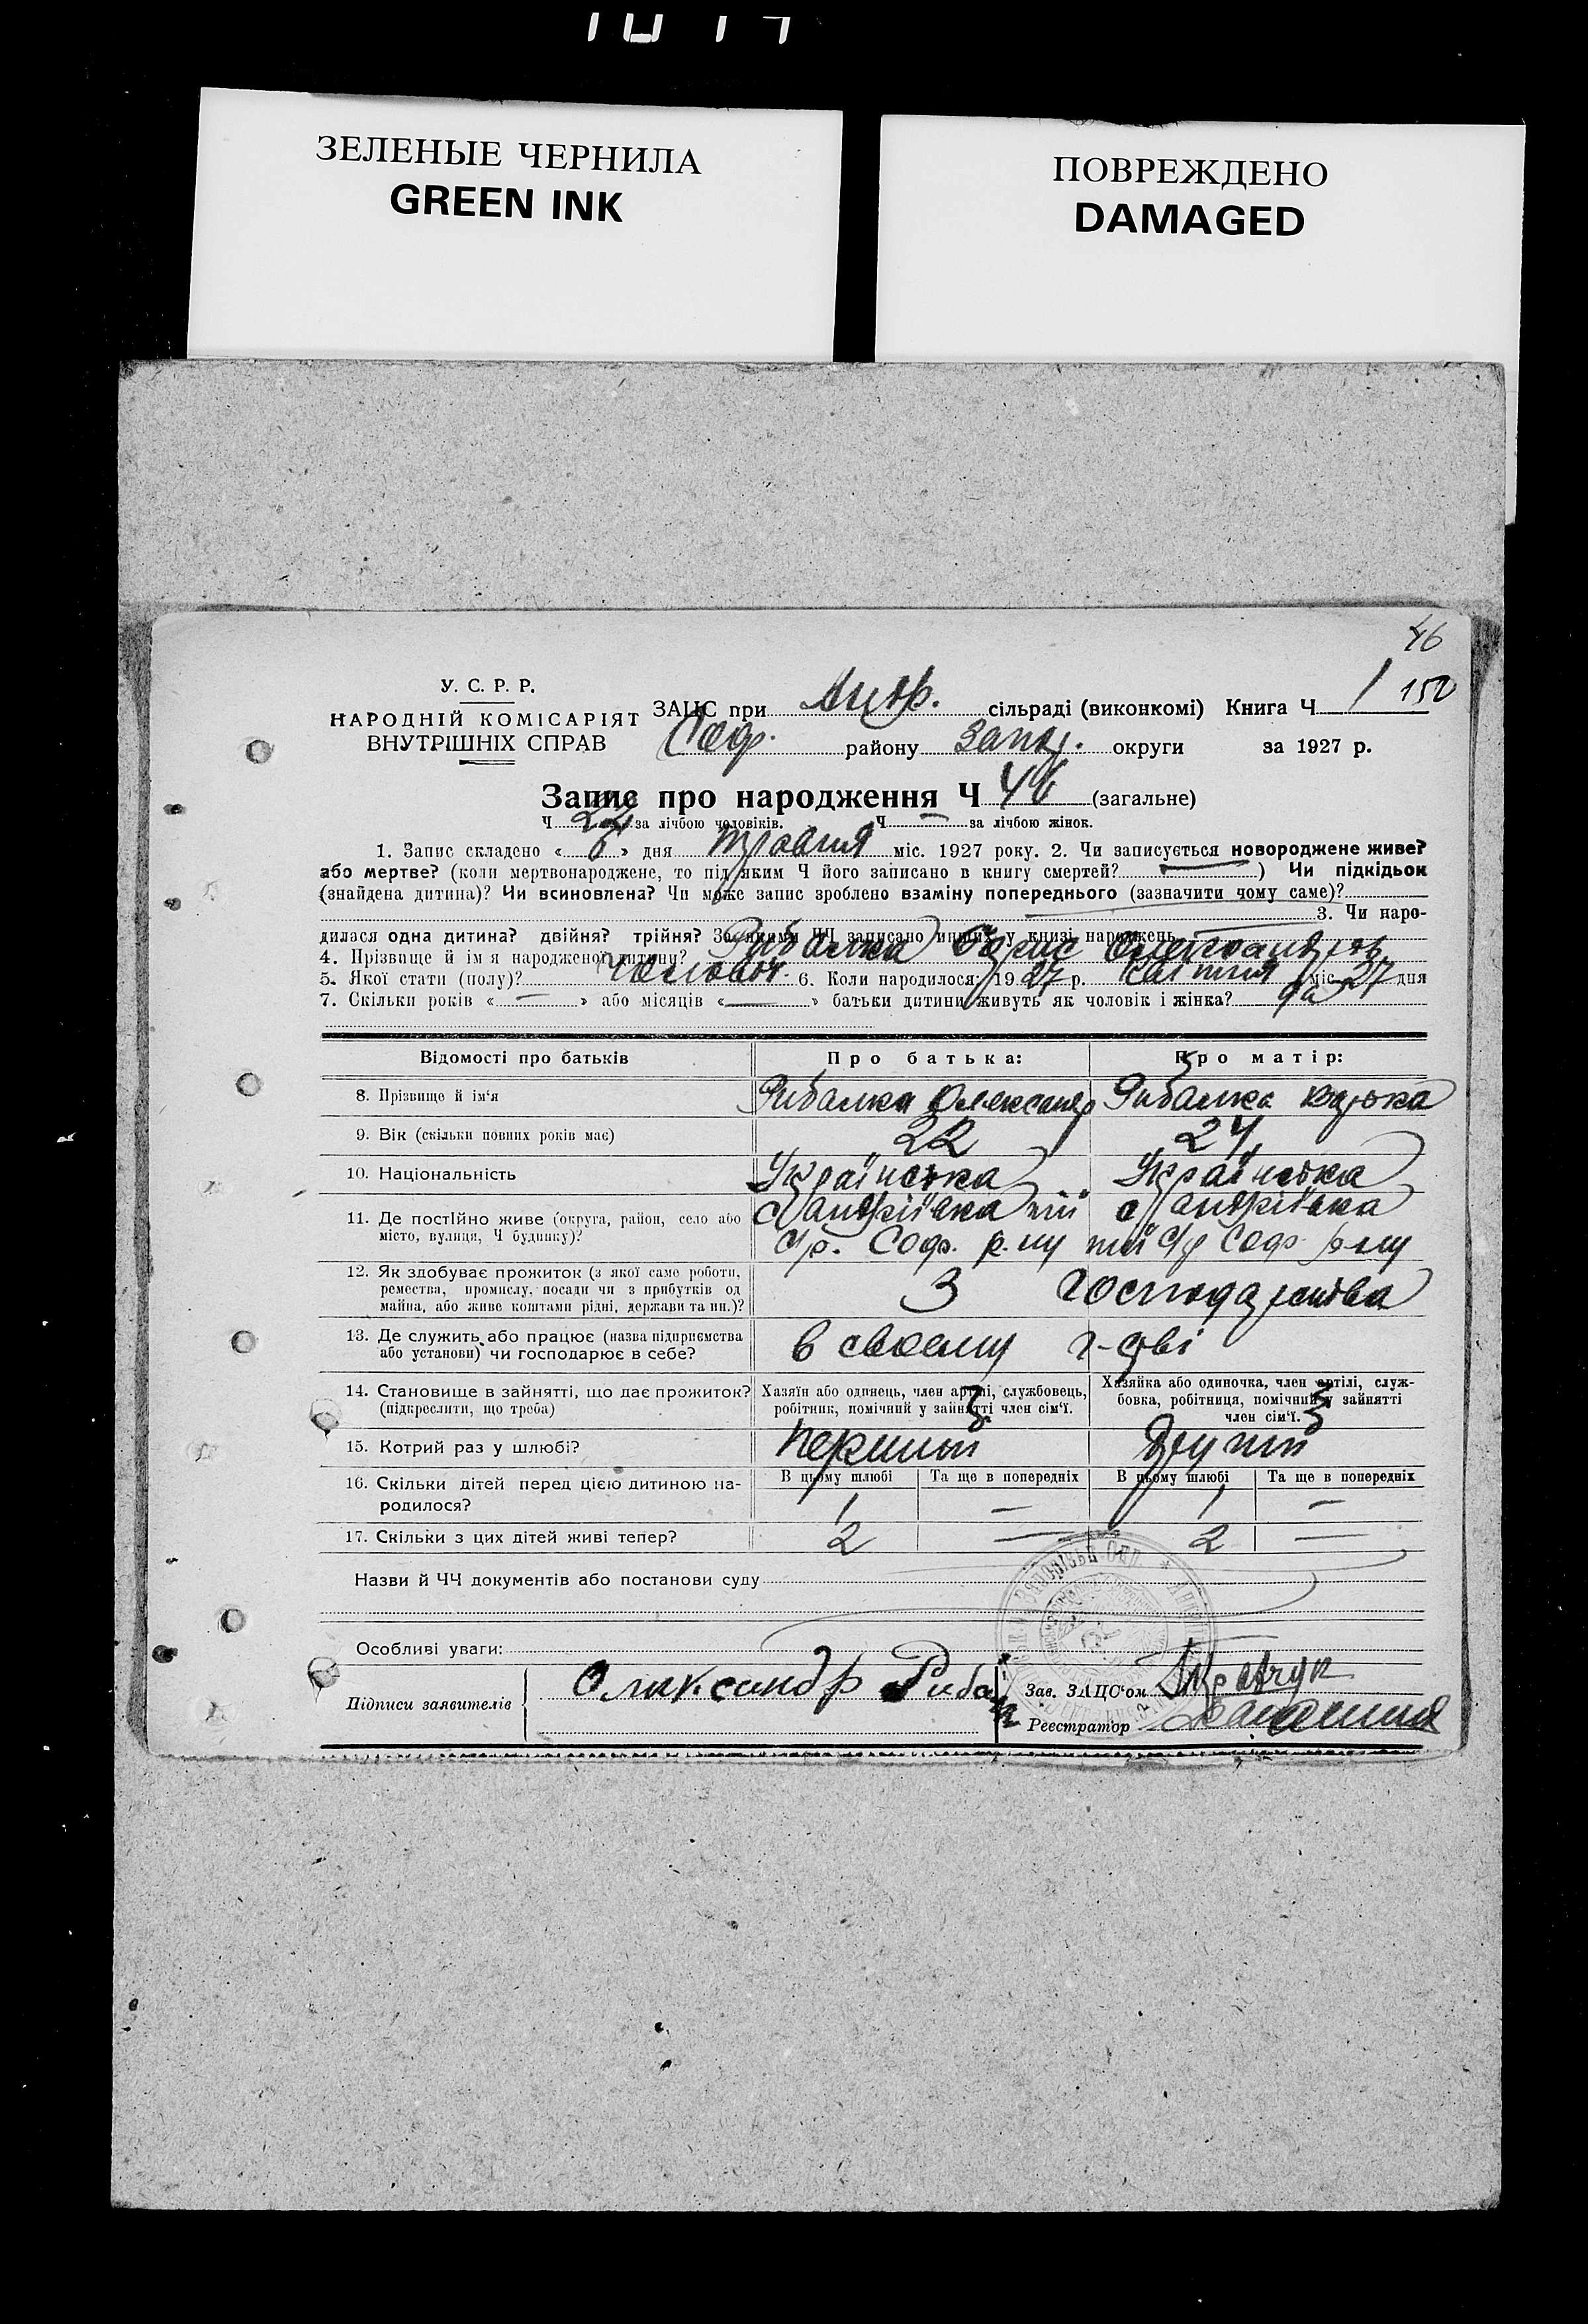 ЗЕЛЕНЫЕ ЧЕРНИЛА
GREEN INK
ПОВРЕЖДЕНО
DAMAGED
46
У. С. Р. Р.
НАРОДНІЙ КОМІСАРІЯТ
ВНУТРІШНІХ СПРАВ
ЗАЦС при Андр. сільраді (виконкомі) Книга Ч 1 150
Соф. району Запор. округи за 1927 р.
Запис про народження Ч 46 (загальне)
Ч 22 за лічбою чоловіків. Ч — за лічбою жінок.
1. Запис складено « 6 » дня травня міс. 1927 року. 2. Чи записується новороджене живе?
або мертве? (коли мертвонароджене, то під яким Ч його записано в книгу смертей? — ) Чи підкідьок
(знайдена дитина)? Чи всиновлена? Чи може запис зроблено взаміну попереднього (зазначити чому саме)?
3. Чи наро-
дилася одна дитина? двійня? трійня? За якими ЧЧ записано инших у книзі народжень
4. Прізвище й ім я народженої дитини? Рибалка Борис Олександров
5. Якої стати (полу)? чоловіч. 6. Коли народилося: 1927 р. квітня міс. 27 дня
7. Скільки років « — » або місяців « — » батьки дитини живуть як чоловік і жінка? да
Відомості про батьків
Про батька:
Про матір:
8. Прізвище й ім'я Рибалка Олександр Рибалка
9. Вік (скільки повних років має) 22 24
10. Національність Українська Українська
11. Де постійно живе (округа, район, село або
місто, вулиця, Ч будинку)?
с Андріївка тій с Андріївка
с/р. Соф. р-ну тій с/р Соф. р-ну
12. Як здобуває прожиток (з якої саме роботи,
ремества, промислу, посади чи з прибутків од
майна, або живе коштами рідні, держави та ин.)?
З господарства
13. Де служить або працює (назва підприємства
або установи) чи господарює в себе?
в своєму г-стві
14. Становище в зайнятті, що дає прожиток?
(підкреслити, що треба)
Хазяїн або одинець, член артілі, службовець,
робітник, помічний у зайнятті член сім'ї.
Хазяйка або одиночка, член артілі, служ-
бовка, робітниця, помічний у зайнятті
член сім'ї.
15. Котрий раз у шлюбі? Перший Другий
16. Скільки дітей перед цією дитиною на-
родилося?
В цьому шлюбі Та ще в попередніх В цьому шлюбі Та ще в попередніх
1 — 1 —
17. Скільки з цих дітей живі тепер? 2 — 2 —
Назви й ЧЧ документів або постанови суду
Особливі уваги:
Підписи заявителів
Олександр Рибалк
Зав. ЗАЦС'ом
Реєстратор